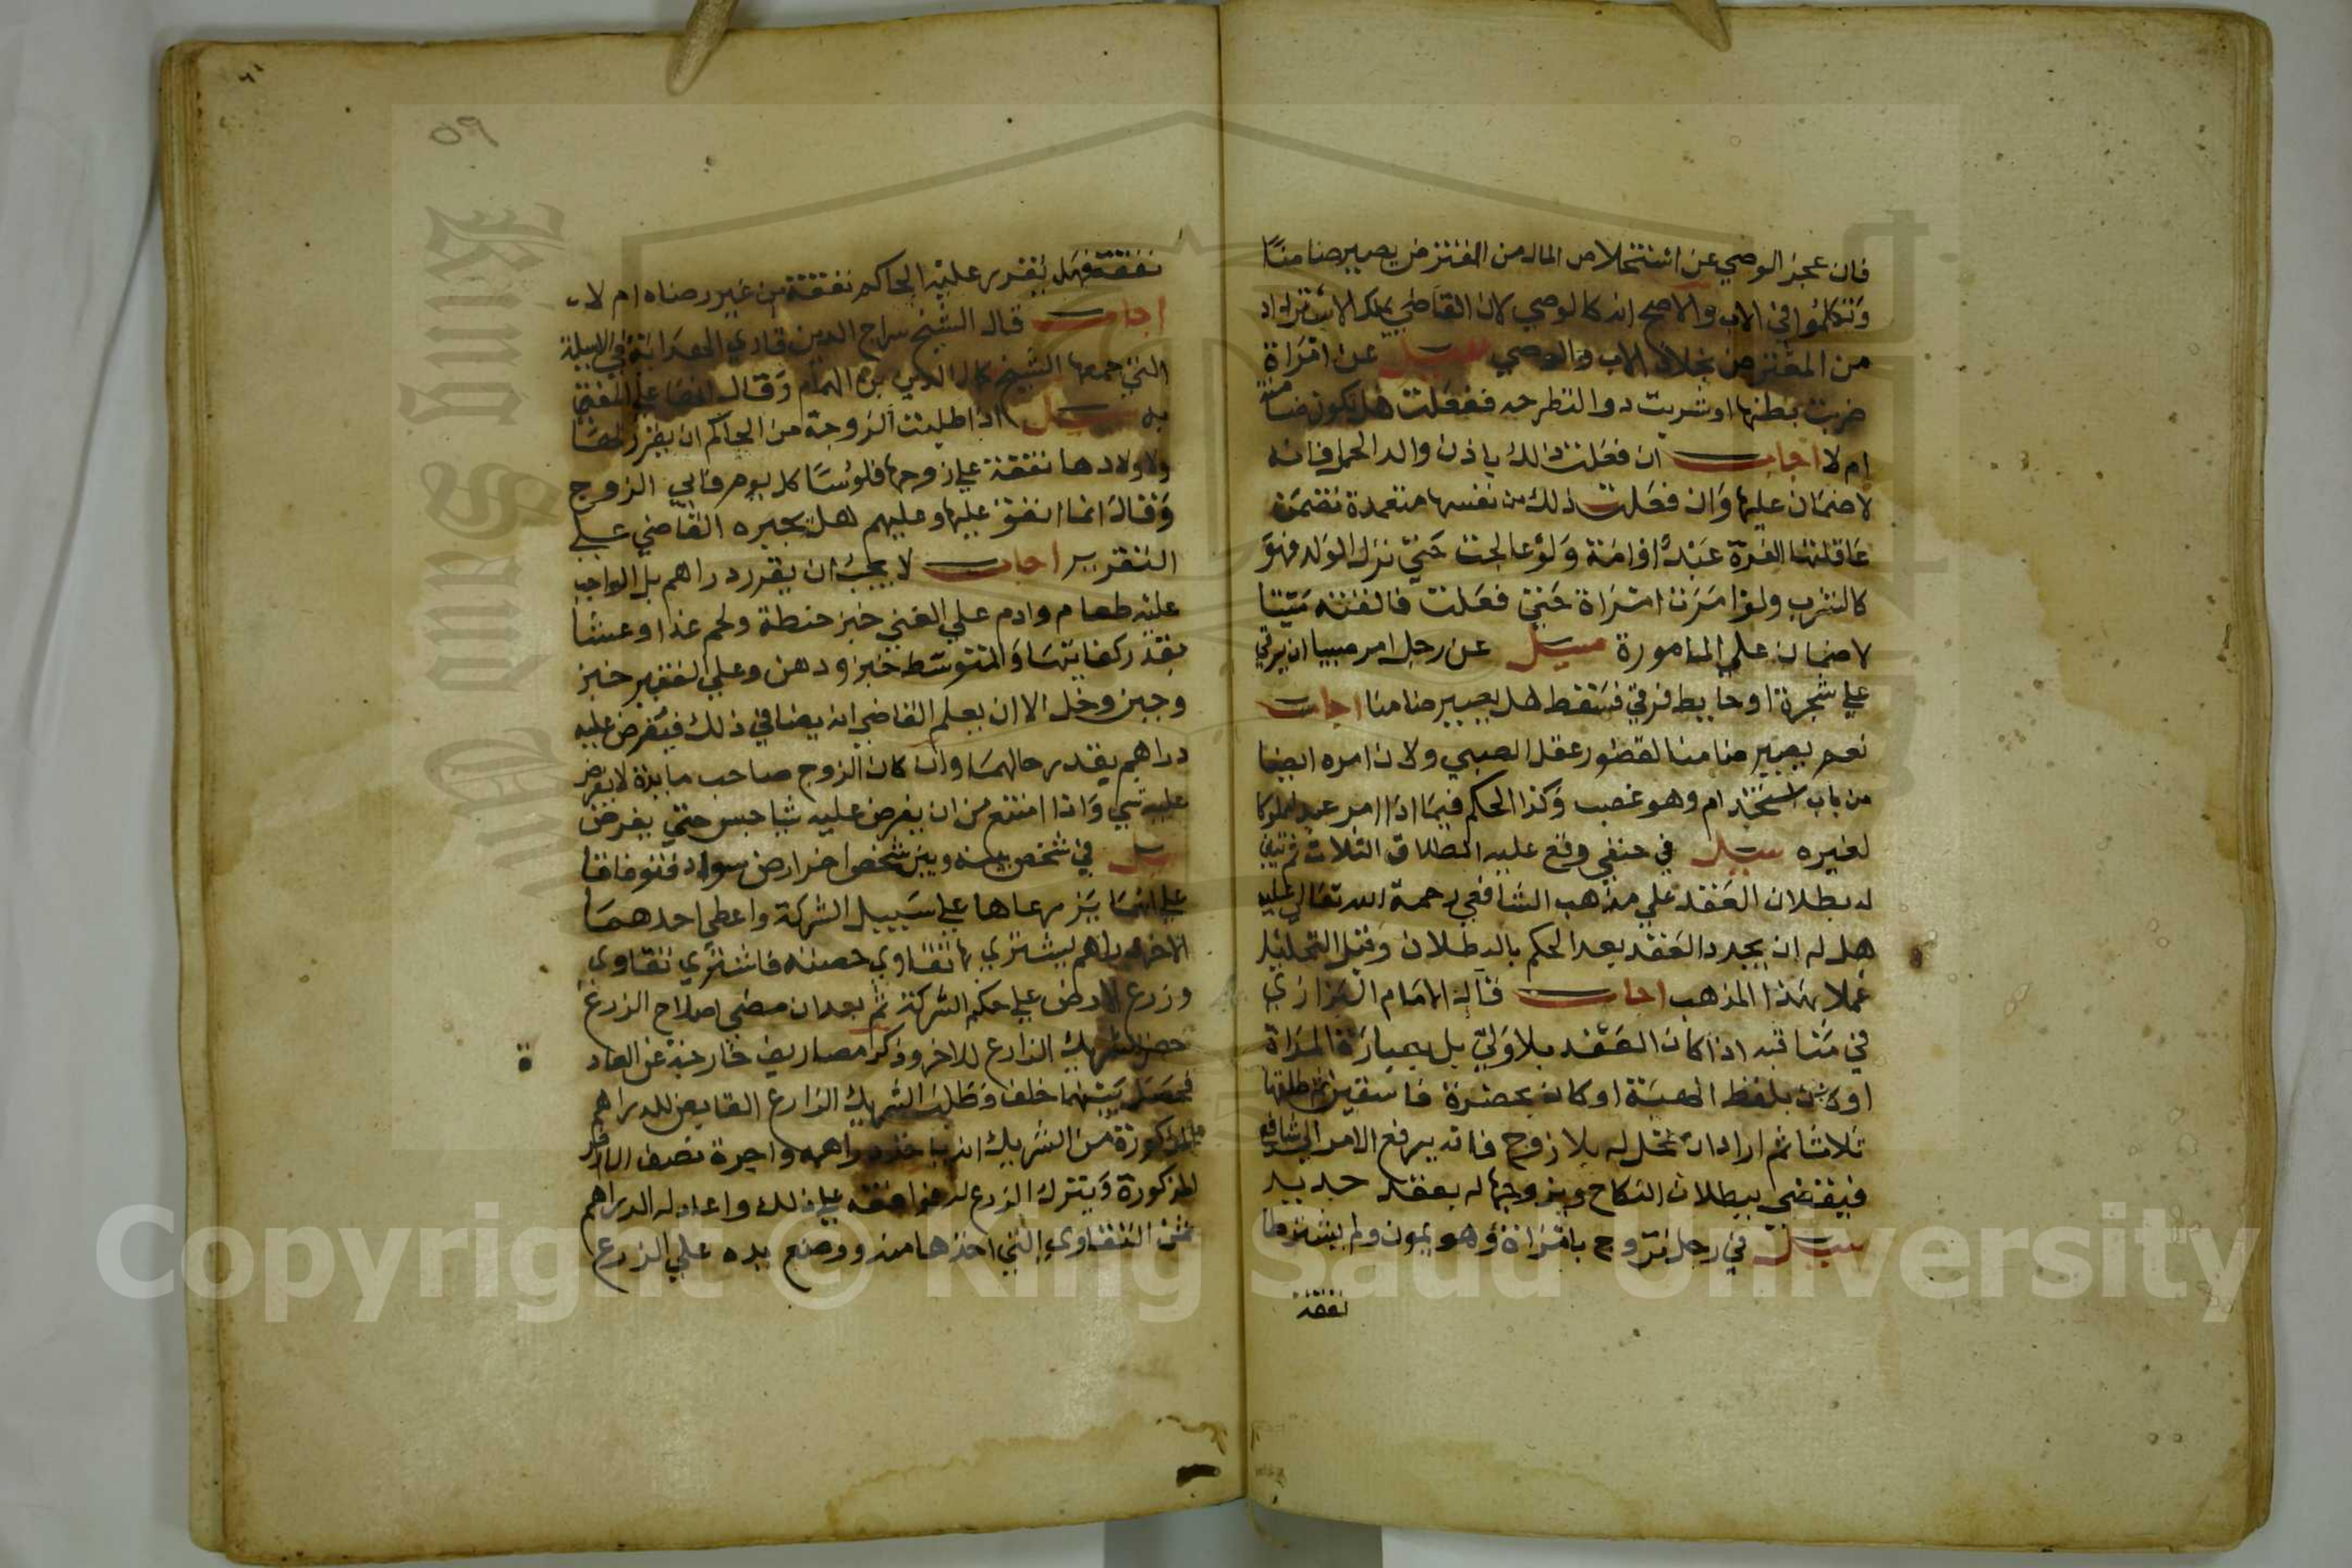 فان عجز الوصي عن استخلاص المال من المفترض يصير ضامنا
وتكلموا في الاب والاصح انه كالوصي لان القاضي يملك الاسترداد
من المفترض بخلاف الاب والوصي سيل عن امراة
ضربت بطنها او شربت دوا لتطرحه ففعلت هل تكون ضامنة
ام لا اجاب ان فعلت ذلك باذن والد الحمل فانه
لا ضمان عليها وان فعلت ذلك من نفسها متعمدة تضمن
عاقلتها الغرة عبد او امة ولو عالجت حتي نزل الولد فهو
كالشرب ولو امرت امراة حتي فعلت فالقته ميتا
لا ضمان علي المامورة سيل عن رجل امر صبيا ان يرقي
علي شجرة او حايط فرقي فسقط هل يصير ضامنا اجاب
نعم يصير ضامنا لقصور عقل الصبي ولان امره ايضا
من باب استخدام وهو غصب وكذا الحكم فيما اذا امر عبدا مملوكا
لغيره سيل في حنفي وقع عليه الطلاق الثلاث
له بطلان العقد علي مذهب الشافعي رحمة الله تعالي عليه
هل له ان يجدد العقد بعد الحكم بالبطلان وقبل التحليل
عملا بهذا المذهب اجاب قال الامام البزازي
في مناقبه اذا كان العقد بلا ولي بل بعبارة المراة
او كان بلفظ الهبة او كان بحضرة فاسقين ثم طلقها
ثلاثا ثم اراد ان تحل له بلا زوج فانه يرفع الامر الي شافعي
فيقضي ببطلان النكاح ويزوجها له بعقد جديد
سيل في رجل تزوج بامراة وهو يمون ولم يشترطا
نفقة
٥٩
نفقة فهل يقدر عليه الحاكم نفقة من غير رضاه ام لا
اجاب قال الشيخ سراج الدين قاري الهداية في الاسيلة
التي جمعها الشيخ كمال الدين بن الهمام وقال انها علي المفتي
به سيل اذا طلبت الزوجة من الحاكم ان يقرر لها
ولاولادها نفقة علي زوجها فلوسا كل يوم فابي الزوج
وقال انما انفق عليها وعليهم هل يجبره القاضي علي
التقرير اجاب لا يجب ان يقرر دراهم بل الواجب
عليه طعام وادم علي الغني خبز حنطة ولحم غدا وعشا
بقدر كفايتها والمتوسط خبز ودهن وعلي الفقير خبز
وجبن وخل الا ان يعلم القاضي انه يضا في ذلك فيفرض عليه
دراهم بقدر حالهما وان كان الزوج صاحب مايدة لا يفرض
عليه شي واذا امتنع من ان يفرض عليه شيا حبس حتي يفرض
سيل في شخص بينه وبين شخص اخر ارض سواد فتوافقا
علي انهما يزرعاها علي سبيل الشركة واعطي احدهما
الاخر دراهم ليشتري بها تقاوي حصته فاشتري تقاوي
وزرع الارض علي حكم الشركة ثم بعد ان مضي صلاح الزرع
حضر الشريك الزارع للاخر وذكر مصاريف خارجة عن العاد ة
فحصل بينهما خلف وطلب الشريك الزارع القابض للدراهم
المذكورة من الشريك ان ياخذ دراهمه واجرة نصف الارض
المذكورة ويترك الزرع له فوافقه علي ذلك واعاد له الدراهم
ثمن التقاوي التي اخذها منه ووضع يده علي الزرع
Copyright © King Saud University